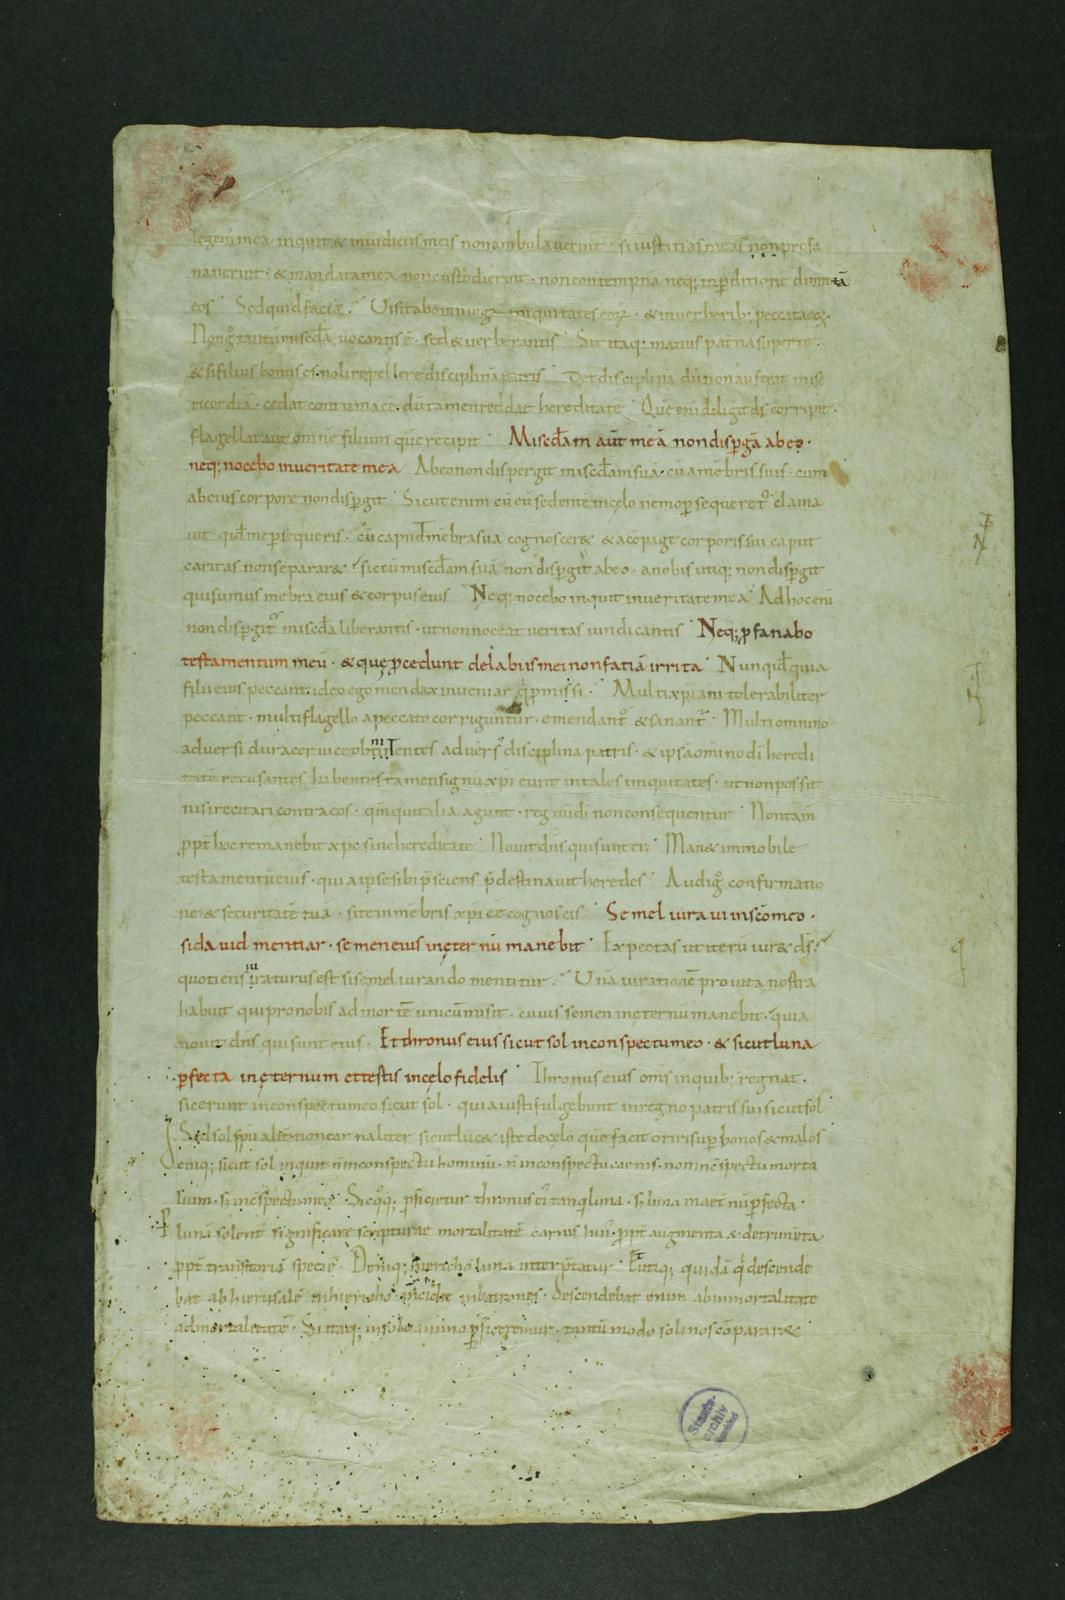 legem mea inquit & iniudiciis meis nonambulaverint · si iustitias meas non profa
naverint · & mandata mea non custodierint · non contempnā neq; inp̄ditione dimittā
eos · Sed quid faciā? Uisitabo in uirga iniquitates eorꝝ · & in uerberib; peccata eorꝝ ·
Non g̊ tantū mscd̄a uocantis ē · sed & uerberantis · Sit itaq; manus patria super te ·
& si filius bonus es · noli repellere disciplinā patris · Det disciplinā dū non auferat mise
ricordiā · cedat contumacē · dū tamen reddat hereditatē · Quē eni diligit ds̄ corripit ·
flagellat aut omnē filium quē recipit · Miscd̄am aut̄ meā non disp̄gā ab eo ·
neq; nocebo in ueritate mea · Ab eo non dispergit miscd̄am suā · cū a mēbris suis · cum
ab eius corpore non disp̄git · Sicut enim cū eū sedentē in cęlo nemo p̄sequeret᷒ clama
uit quid me p̄sequeris · cū caput mēbra sua cognoscer& & a cōpage corporis sui caput
caritas non separar& · sic cū miscd̄am suā non disp̄git ab eo · a nobis utiq; non disp̄git
qui sumus mēbra eius & corpus eius · Neq; nocebo inquit in ueritate mea · Ad hoc eni
non disp̄git᷒ miscd̄a liberantis · ut non noceat ueritas uindicantis · Neq; ꝓfanabo
testamentum meū · & quę ꝓcedunt de labiis meis non faciā irrita · Nunquid quia
filii eius peccant · ideo ego mendax inueniar ꝓmissi · Multi xp̄iani tolerabiliter
peccant · multi flagello a peccato corriguntur · emendant᷒ & sanant᷒ · Multi omnino
aduersi dura ceruice obnitentes aduers᷒ disciplinā patris · & ipsā omnino di heredi
tatē recusantes habentes tamen signū xp̄i eunt in tales iniquitates · ut non possit
nisi recitari contra eos · qm̄ qui talia agunt · regnū di non consequentur · Non tam
ꝓpt̄ hoc remanebit xp̄c sine hereditate · Nouit dn̄s qui sunt ei; · Man& immobile
testamentū eius · quia ipse sibi p̄sciens p̄destinauit heredes · Audi g̊ confirmatio
nē & securitatē tuā · si te in mēbris xp̄i ēē cognoscis · Semel iuraui in sc̄o meo ·
si dauid mentiar · semen eius in ęternū manebit · Expectas ut iterū iur& ds̄?
quotiens iuraturus est si semel iurando mentitur? Unā iurationē pro uita nostra
habuit qui pro nobis ad mortē unicū misit · cuius semen in ęternū manebit · quia
nouit dn̄s qui sunt eius · Et thronus eius sicut sol in conspectu meo · & sicut luna
p̄fecta in ęternum et testis in cęlo fidelis · Thronus eius om̄s in quib; regnat ·
sic erunt in conspectu meo sicut sol · quia iusti fulgebunt in regno patris sui sicut sol
Sed sol spū alet non carnaliter sicut luc& iste de cęlo quē facit oriri sup̄ bonos & malos
eniq; sicut sol inquit ñ in conspectu hominū · ñ in conspectu carnis · non in cōspectu morta
lium · sȝ in cōspectu meo · Sic q̊q; ꝓficietur thronus ei; tanq̄ luna · sȝ luna in aet̄nū p̄fecta ·
lunā solent significare scripturae mortalitatē carnis hui᷒ · ꝓpt̄ augmenta & detrimēta
ꝓpt̄ transitoriā speciē · Deniq; hiericho luna interp̄tatur · Et utiq; quidā q̄ descende
bat ab hierusalē in hiericho · incidit in latrones · Descendebat enim ab inmortalitate
ad mortalitatē · Si itaq; in solo animo p̄ficeremur · tantū modo soli nos cōparar&